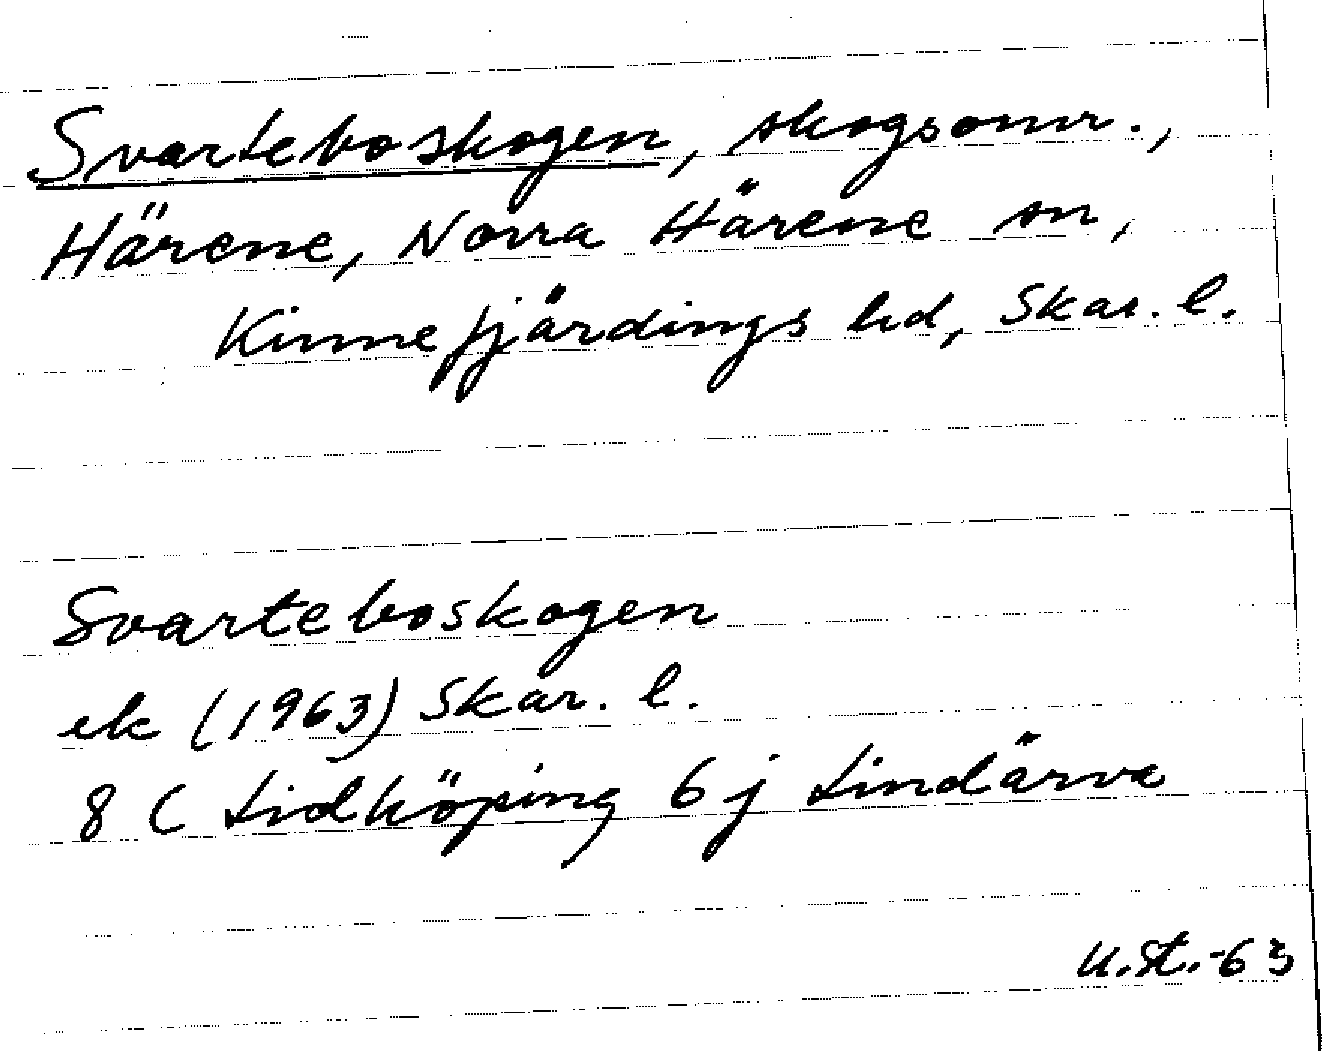 Svarteboskogen, skogsomr.,
Härene, Norra Härene sn,
Kinnefjärdings hd, Skar. l.
Svarteboskogen
ek (1963) Skar. l.
8 C Lidköping 6 j Lindärva
U.St.-63